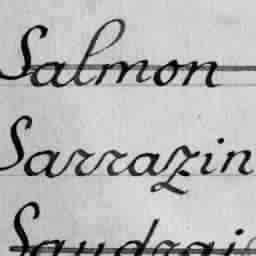 Salmon
Sarrazin